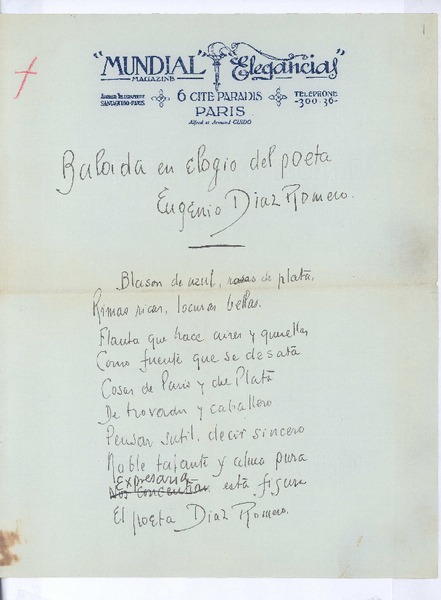 1
"MUNDIAL" "Elegancias"
MAGAZINE
6 CITÉ PARADIS
PARIS
Alfred et Armand GUIDO
TELEPHONE
-300.36-
Balada en elogio del poeta
Eugenio Diaz Romero.
Blason de azul, rosas de plata,
Rimas ricas, locuras bellas.
Flauta que hace aires y querellas
Como fuente que se desata
Cosas de Paris y de Plata
De trovador y caballero
Pensar sutil, decir sincero
Noble talante y alma pura
Expresaria
esta figura
El poeta Diaz Romero.